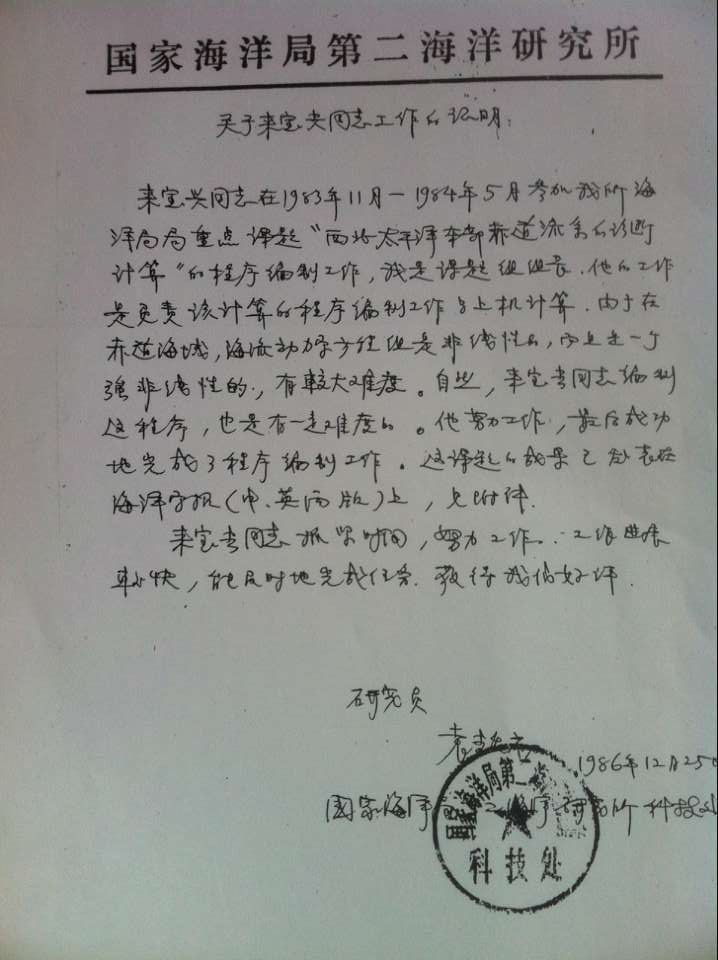 国家海洋局第二海洋研究所
关于来宝兴同志工作的证明:
来宝兴同志在1983年11月—1984年5月参加我所海
洋局局重点课题"西北太平洋东部赤道流系的诊断
计算"的程序编制工作,我是课题组组长.他的工作
是负责该计算的程序编制工作与上机计算.由于在
赤道海域,海流动力学方程组是非线性的,而且是一个
强非线性的,有较大难度。自然,来宝兴同志编制
这程序,也是有一定难度的。他努力工作,最后成功
地完成了程序编制工作。这课题的成果已发表在
海洋学报(中、英两版)上,见附件.
来宝兴同志抓紧时间,努力工作.工作进展
较快,能及时地完成任务.获得我们好评.
研究员
1986年12月25日
国家海洋局第二海洋研究所科技处
国家海洋局第二海洋研究所
科技处